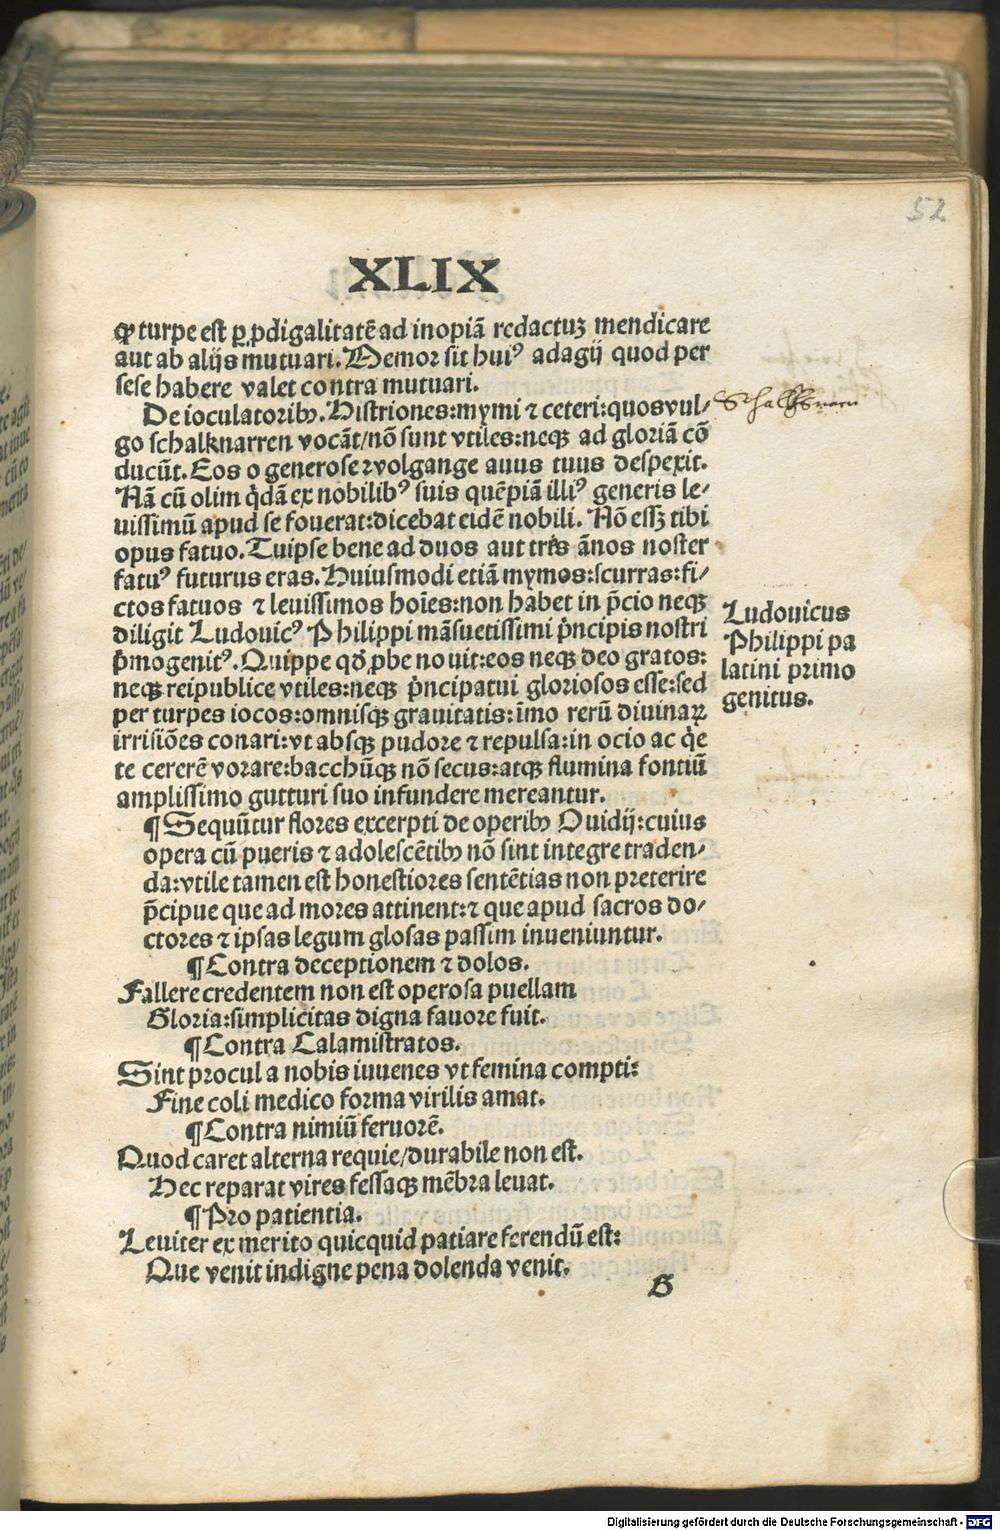 52
XLIX
ꝙ turpe est ꝑ ꝓdigalitatē ad inopiā redactuꝫ mendicare
aut ab alijs mutuari. Memor sit huiꝰ adagij quod per
sese habere valet contra mutuari.
De ioculatoribꝰ. Histriones: mymi ⁊ ceteri: quos vul/
go schalknarren vocāt/nō sunt vtiles: neqꝫ ad gloriā cō
ducūt. Eos o generose wolgange auus tuus despexit.
Nā cū olim q̇dā ex nobilibꝰ suis quēpiā illiꝰ generis le/
uissimū apud se fouerat: dicebat eidē nobili. Nō essꝫ tibi
opus fatuo. Tuipse bene ad duos aut tres ānos noster
fatuꝰ futurus eras. Huiusmodi etiā mymos: scurras: fi/
ctos fatuos ⁊ leuissimos hoīes: non habet in p̄cio neqꝫ
diligit Ludouicꝰ Philippi māsuetissimi pͥncipis nostri
pͥmogenitꝰ. Quippe qđ ꝓbe nouit: eos neqꝫ deo gratos:
neqꝫ reipublice vtiles: neqꝫ pͥncipatui gloriosos esse: sed
per turpes iocos: omnisqꝫ grauitatis: īmo rerū diuinaꝝ
irrisiōes conari: vt absqꝫ pudore ⁊ repulsa: in ocio ac q̇e
te cererē vorare: bacchūqꝫ nō secus: atqꝫ flumina fontiū
amplissimo gutturi suo infundere mereantur.
Schalksnarn
Ludouicus
Philippi pa
latini primo
genitus.
¶ Sequūtur flores excerpti de operibꝰ Ouidij: cuius
opera cū pueris ⁊ adolescētibꝰ nō sint integre traden/
da: vtile tamen est honestiores sentētias non preterire
p̄cipue que ad mores attinent: ⁊ que apud sacros do/
ctores ⁊ ipsas legum glosas passim inueniuntur.
¶ Contra deceptionem ⁊ dolos.
Fallere credentem non est operosa puellam
Gloria: simplicitas digna fauore fuit.
¶ Contra Calamistratos.
Sint procul a nobis iuuenes vt femina compti:
Fine coli medico forma virilis amat.
¶ Contra nimiū feruorē.
Quod caret alterna requie/durabile non est.
Hec reparat vires fessaqꝫ mēbra leuat.
¶ Pro patientia.
Leuiter ex merito quicquid patiare ferendū est:
Que venit indigne pena dolenda venit.
G
Digitalisierung gefördert durch die Deutsche Forschungsgemeinschaft - DFG